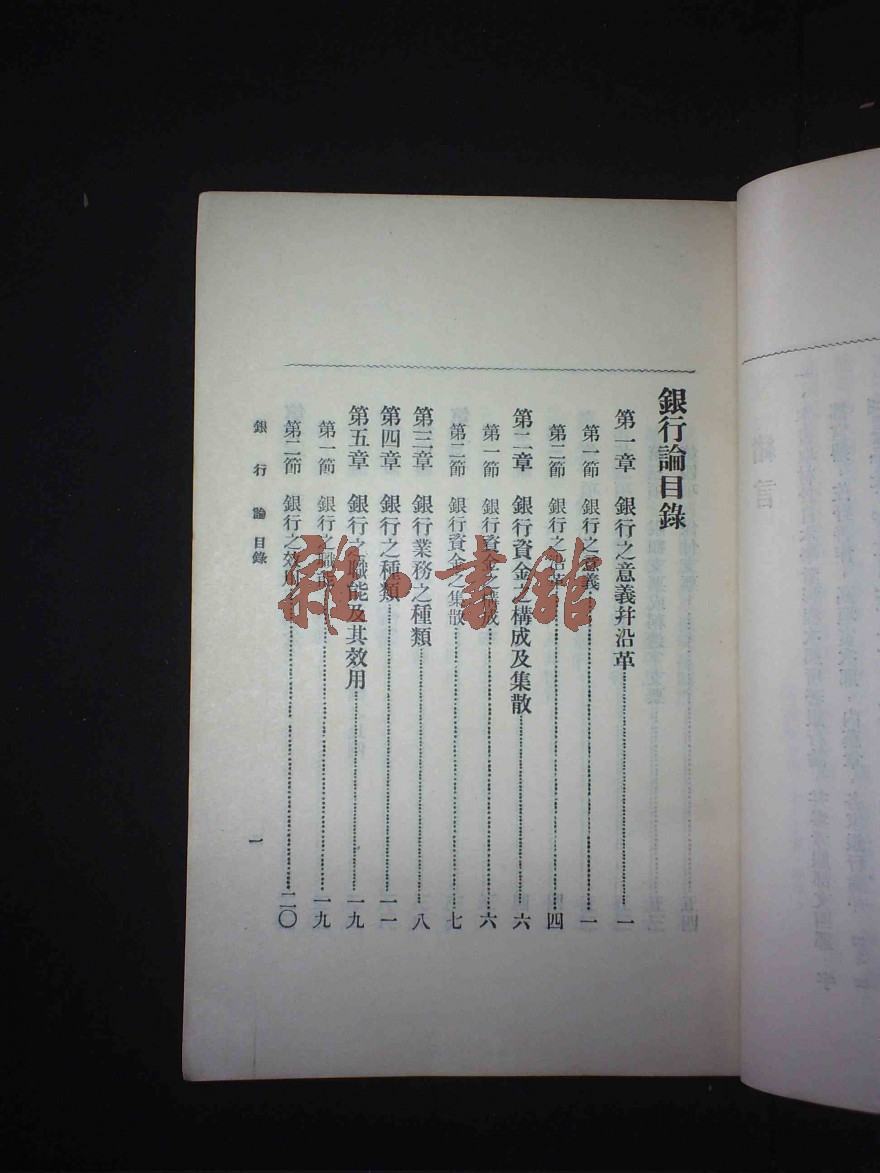 銀行論目錄
第一章 銀行之意義并沿革……一
第一節 銀行之意義……一
第二節 銀行之沿革……四
第二章 銀行資金之構成及集散……六
第一節 銀行資金之構成……六
第二節 銀行資金之集散……七
第三章 銀行業務之種類……八
第四章 銀行之種類……一一
第五章 銀行之職能及其效用……一九
第一節 銀行之職能……一九
第二節 銀行之效用……二〇
銀行論 目錄
一
雜·書館